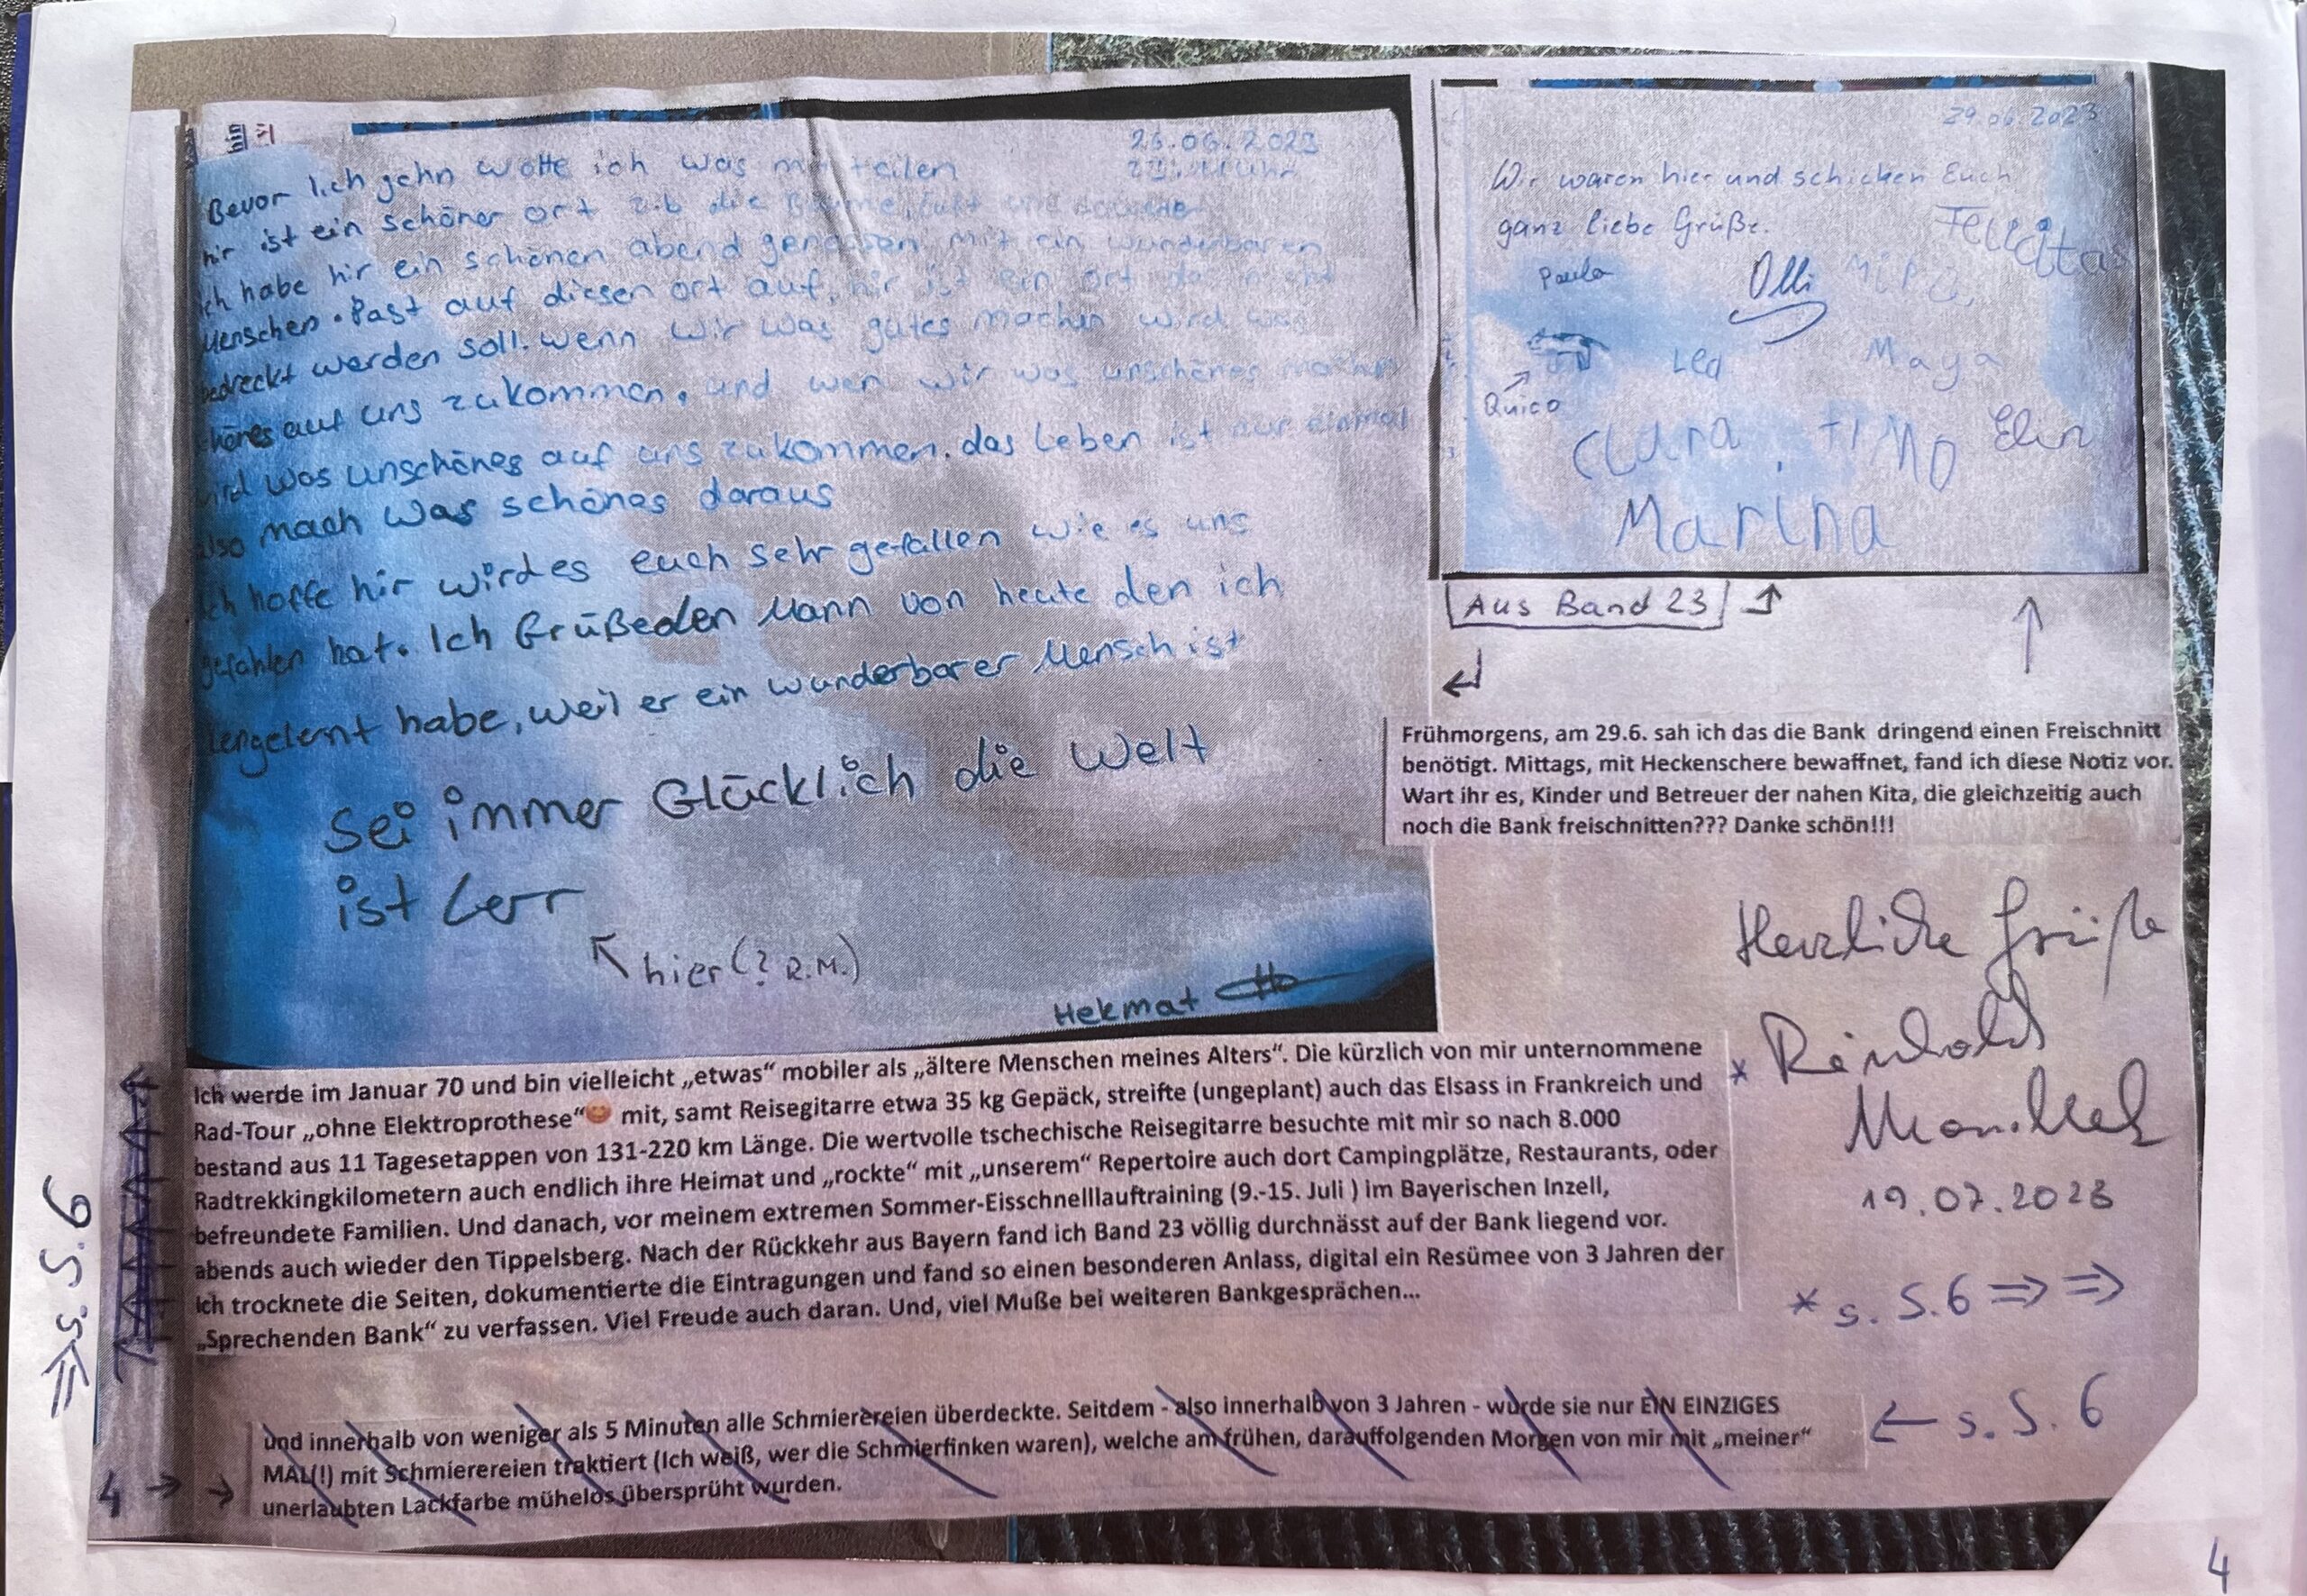 26.06.2023
Bevor ich gehn wolte ich was mitteilen
hir ist ein schöner ort z.b die Bäume, luft
ich habe hir ein schönen abend genossen mit ein wunderbaren
Menschen. Past auf diesen ort auf, hir ist ein ort da nicht
bedreckt werden soll. wenn wir was gutes machen wird was
schönes auf uns zukommen. und wen wir was unschönes machen
wird was unschönes auf uns zukommen. das Leben ist nur einmal
also mach was schönes daraus
ich hoffe hir wird es euch sehr gefallen wie es uns
gefahlen hat. Ich Grüße den Mann von heute den ich
kengelernt habe, weil er ein wunderbarer Mensch ist
Sei immer Glücklich die Welt
ist Lerr
hier (? R.M.)
Hekmat
29.06.2023
Wir waren hier und schicken Euch
ganz liebe Grüße.
Felicitas
Paula
Olli
Mira
Lea
Maya
Quico
Clara, TIMO
Elin
Marina
Aus Band 23
Frühmorgens, am 29.6. sah ich das die Bank dringend einen Freischnitt
benötigt. Mittags, mit Heckenschere bewaffnet, fand ich diese Notiz vor.
Wart ihr es, Kinder und Betreuer der nahen Kita, die gleichzeitig auch
noch die Bank freischnitten??? Danke schön!!!
Herzliche Grüße
Reinhold
19.07.2023
* s. S.6 ⇒ ⇒
← s. S. 6
⇒ s. S. 6
Ich werde im Januar 70 und bin vielleicht „etwas“ mobiler als „ältere Menschen meines Alters“. Die kürzlich von mir unternommene *
Rad-Tour „ohne Elektroprothese“😊 mit, samt Reisegitarre etwa 35 kg Gepäck, streifte (ungeplant) auch das Elsass in Frankreich und
bestand aus 11 Tagesetappen von 131-220 km Länge. Die wertvolle tschechische Reisegitarre besuchte mit mir so nach 8.000
Radtrekkingkilometern auch endlich ihre Heimat und „rockte“ mit „unserem“ Repertoire auch dort Campingplätze, Restaurants, oder
befreundete Familien. Und danach, vor meinem extremen Sommer-Eisschnelllauftraining (9.-15. Juli ) im Bayerischen Inzell,
abends auch wieder den Tippelsberg. Nach der Rückkehr aus Bayern fand ich Band 23 völlig durchnässt auf der Bank liegend vor.
Ich trocknete die Seiten, dokumentierte die Eintragungen und fand so einen besonderen Anlass, digital ein Resümee von 3 Jahren der
„Sprechenden Bank“ zu verfassen. Viel Freude auch daran. Und, viel Muße bei weiteren Bankgesprächen...
und innerhalb von weniger als 5 Minuten alle Schmierereien überdeckte. Seitdem - also innerhalb von 3 Jahren - wurde sie nur EIN EINZIGES
MAL(!) mit Schmierereien traktiert (Ich weiß, wer die Schmierfinken waren), welche am frühen, darauffolgenden Morgen von mir mit „meiner“
4 → → unerlaubten Lackfarbe mühelos übersprüht wurden.
4